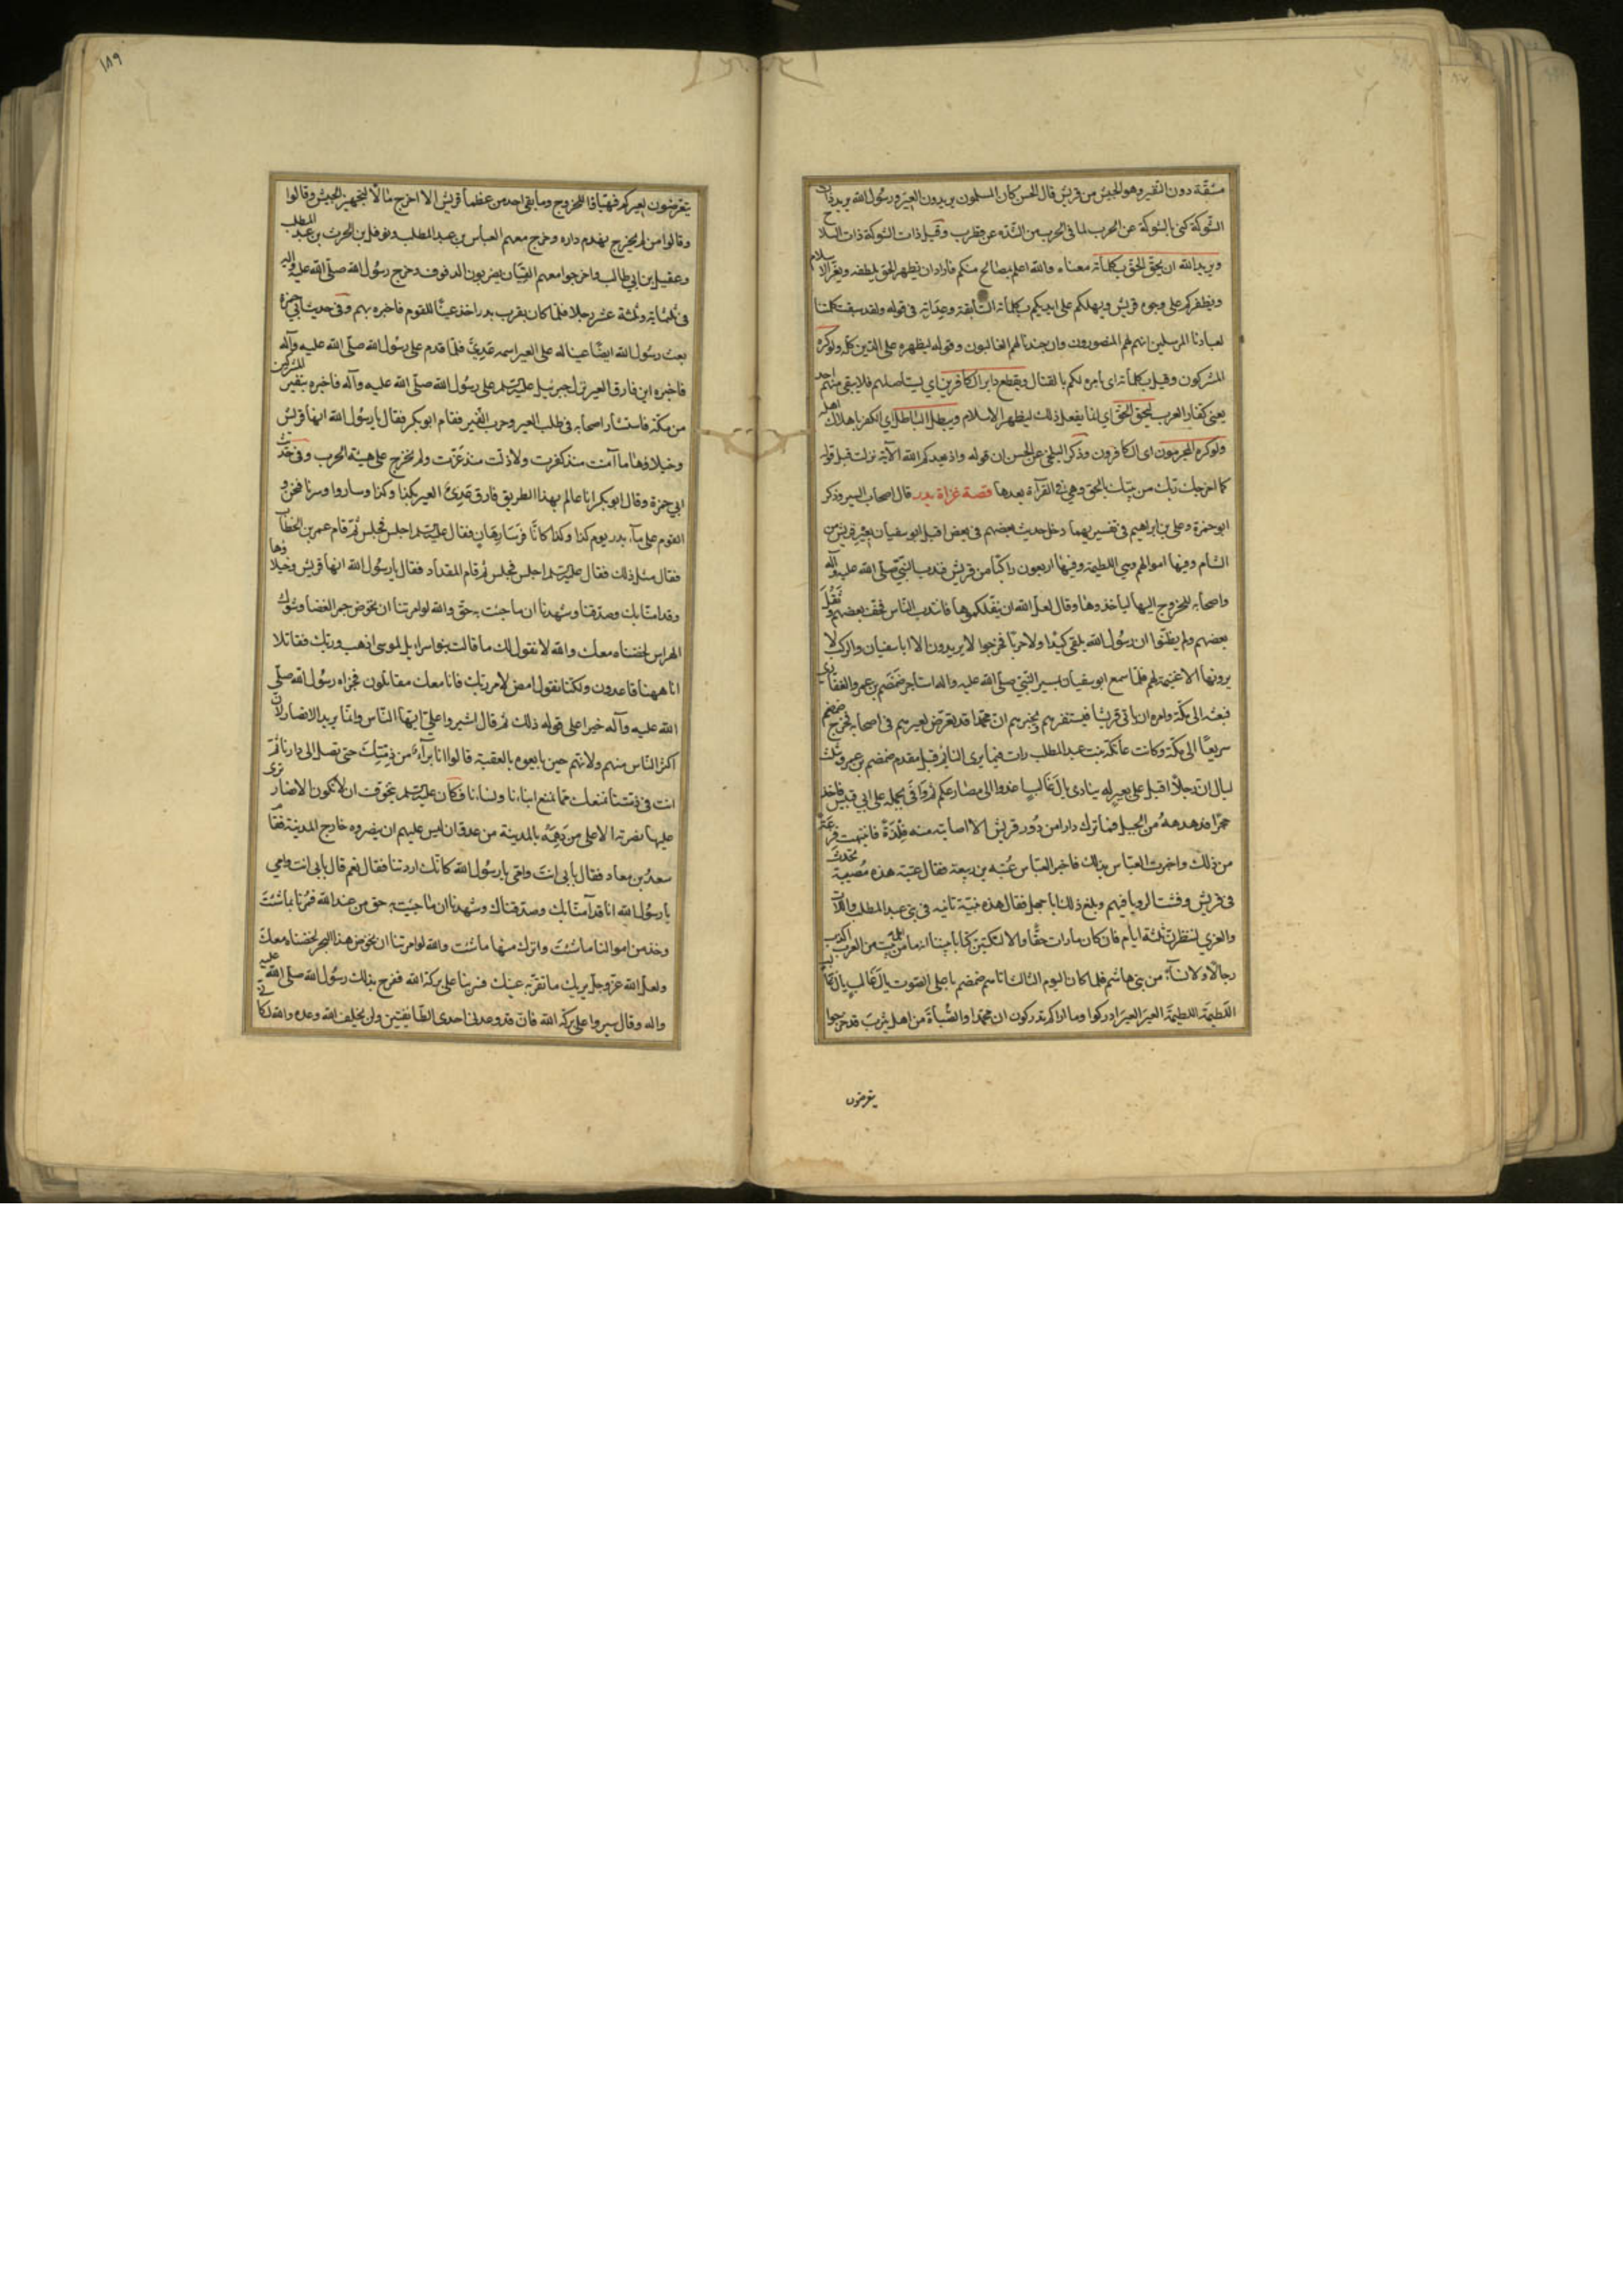 مشقة دون النفير وهو الجيش من قريش قال الحسن كان المسلمون يريدون العير ورسول الله يريد ذات
الشوكة كنى بالشوكة عن الحرب لما في الحرب من الشدة عن قطرب وقيل ذات الشوكة ذات السلاح
ويريد الله ان يحق الحق بكلماته معناه والله اعلم بمصالحكم منكم فاراد ان يظهر الحق بلطفه ويعز الاسلام
ويظفركم على وجوه قريش ويهلكهم على ايديكم بكلماته السابقة وعداته في قوله ولقد سبقت كلمتنا
لعبادنا المرسلين انهم لهم المنصورون وان جندنا لهم الغالبون وقوله ليظهره على الدين كله ولو كره
المشركون وقيل بكلماته اي بامره لكم بالقتال ويقطع دابر الكافرين اي يستاصلهم فلا يبقى منهم احد
يعني كفار العرب ليحق الحق اي انما يفعل ذلك ليظهر الاسلام ويبطل الباطل اي الكفر باهلاك اهله
ولو كره المجرمون اي الكافرون وذكر البلخي عن الحسن ان قوله واذ يعدكم الله الآية نزلت قبل قوله
كما اخرجك ربك من بيتك بالحق وهي في القرآة بعدها قصة غزاة بدر قال اصحاب السير وذكر
ابو حمزة وعلي بن ابراهيم في تفسيريهما دخل حديث بعضهم في بعض اقبل ابو سفيان بعير قريش من
الشام وفيها اموالهم وهي اللطيمة وفيها اربعون راكبا من قريش فندب النبي صلى الله عليه وآله
واصحابه للخروج اليها لياخذوها وقال لعل الله ان ينفلكموها فانتدب الناس فخف بعضهم وثقل
بعضهم ولم يظنوا ان رسول الله يلقى كيدا ولا حربا فخرجوا لا يريدون الا ابا سفيان والركب لا
يرونها الا غنيمة لهم فلما سمع ابو سفيان بمسير النبي صلى الله عليه واله استاجر ضمضم بن عمرو الغفاري
فبعثه الى مكة وامره ان ياتي قريشا فيستنفرهم ويخبرهم ان محمدا قد تعرض لعيرهم في اصحابه فخرج ضمضم
سريعا الى مكة وكانت عاتكة بنت عبد المطلب رات فيما يرى النائم قبل مقدم ضمضم بن عمرو بثلث
ليال ان رجلا اقبل على بعير له ينادي يا لغالب اغدوا الى مصارعكم ثم وافى بجمله على ابي قبيس فاخذ
حجرا فدهدهه من الجبل فما ترك دارا من دور قريش الا اصابته منه فلذة فانتبهت فزعة
من ذلك واخبرت العباس بذلك فاخبر العباس عتبه بن ربيعة فقال عتبة هذه مصيبة تحدث
في قريش وفشت الرويا فيهم وبلغ ذلك ابا جهل فقال هذه نبية ثانيه في بني عبد المطلب واللات
والعزى لننظرن ثلثة ايام فان كان ما رات حقا والا لنكتبن كتابا بيننا انه ما من اهل بيت من العرب اكذب
رجالا ولا نساء من بني هاشم فلما كان اليوم الثالث اتاهم ضمضم باعلى الصوت يا لغالب يا لغالب
اللطيمة اللطيمة العير العير ادركوا وما اراكم تدركون ان محمدا والصباة من اهل يثرب قد خرجوا
يتعرضون
١٨٩
يتعرضون لعيركم فتهياوا للخروج وما بقي احد من عظماء قريش الا اخرج مالا لتجهيز الجيش وقالوا
وقالوا من لم يخرج نهدم داره وخرج معهم العباس بن عبد المطلب ونوفل بن الحرث بن عبد المطلب
وعقيل بن ابي طالب واخرجوا معهم القيان يضربون الدفوف وخرج رسول الله صلى الله عليه واله
في ثلثمائة وثلثة عشر رجلا فلما كان بقرب بدر اخذ عينا للقوم فاخبره بهم وفي حديث ابي حمزة
بعث رسول الله ايضا عينا له على العير اسمه عدي فلما قدم على رسول الله صلى الله عليه وآله
فاخبره اين فارق العير نزل جبرئيل عليه السلم على رسول الله صلى الله عليه وآله فاخبره بنفير المشركين
من مكة فاستشار اصحابه في طلب العير وحرب النفير فقام ابو بكر فقال يا رسول الله انها قريش
وخيلاؤها ما آمنت منذ كفرت ولا ذلت منذ عزت ولم نخرج على هيئة الحرب وفي حديث
ابي حمزة وقال ابو بكر انا عالم بهذا الطريق فارق عدي العير بكذا وكذا وساروا وسرنا فنحن و
القوم على ماء بدر يوم كذا وكذا كانا فرسا رهان فقال عليه السلم اجلس فجلس ثم قام عمر بن الخطاب
فقال مثل ذلك فقال عليه السلم اجلس فجلس ثم قام المقداد فقال يا رسول الله انها قريش وخيلاؤها
وقد امنا بك وصدقنا وشهدنا ان ما جئت به حق والله لو امرتنا ان نخوض جمر الغضا وشوك
الهراس لخضناه معك والله لا نقول لك ما قالت بنو اسرايل لموسى اذهب وربك فقاتلا
انا ههنا قاعدون ولكنا نقول امض لامر ربك فانا معك مقاتلون فجزاه رسول الله صلى
الله عليه وآله خيرا على قوله ذلك ثم قال اشيروا علي ايها الناس وانما يريد الانصار لان
اكثر الناس منهم ولانهم حين بايعوه بالعقبة قالوا انا برآء من ذمتك حتى تصل الى دارنا ثم
انت في ذمتنا نمنعك مما نمنع ابناءنا ونساءنا فكان عليه السلم يتخوف ان لا تكون الانصار ترى
عليها نصرته الا على من دهمه بالمدينة من عدو وان ليس عليهم ان ينصروه خارج المدينة فقام
سعد بن معاد فقال بابي انت وامي يا رسول الله كانك اردتنا فقال نعم قال بابي انت وامي
يا رسول الله انا قد آمنا بك وصدقناك وشهدنا ان ما جئت به حق من عند الله فمرنا بما شئت
وخذ من اموالنا ما شئت واترك منها ما شئت والله لو امرتنا ان نخوض هذا البحر لخضناه معك
ولعل الله عز وجل يريك ما تقر به عينك فسر بنا على بركة الله ففرح بذلك رسول الله صلى الله عليه
واله وقال سيروا على بركة الله فان قد وعدني احدى الطائفتين ولن يخلف الله وعده والله لكاني